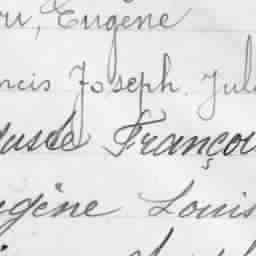 ou, Eugène
ncis Joseph Jul
uste Franço
gène Louis